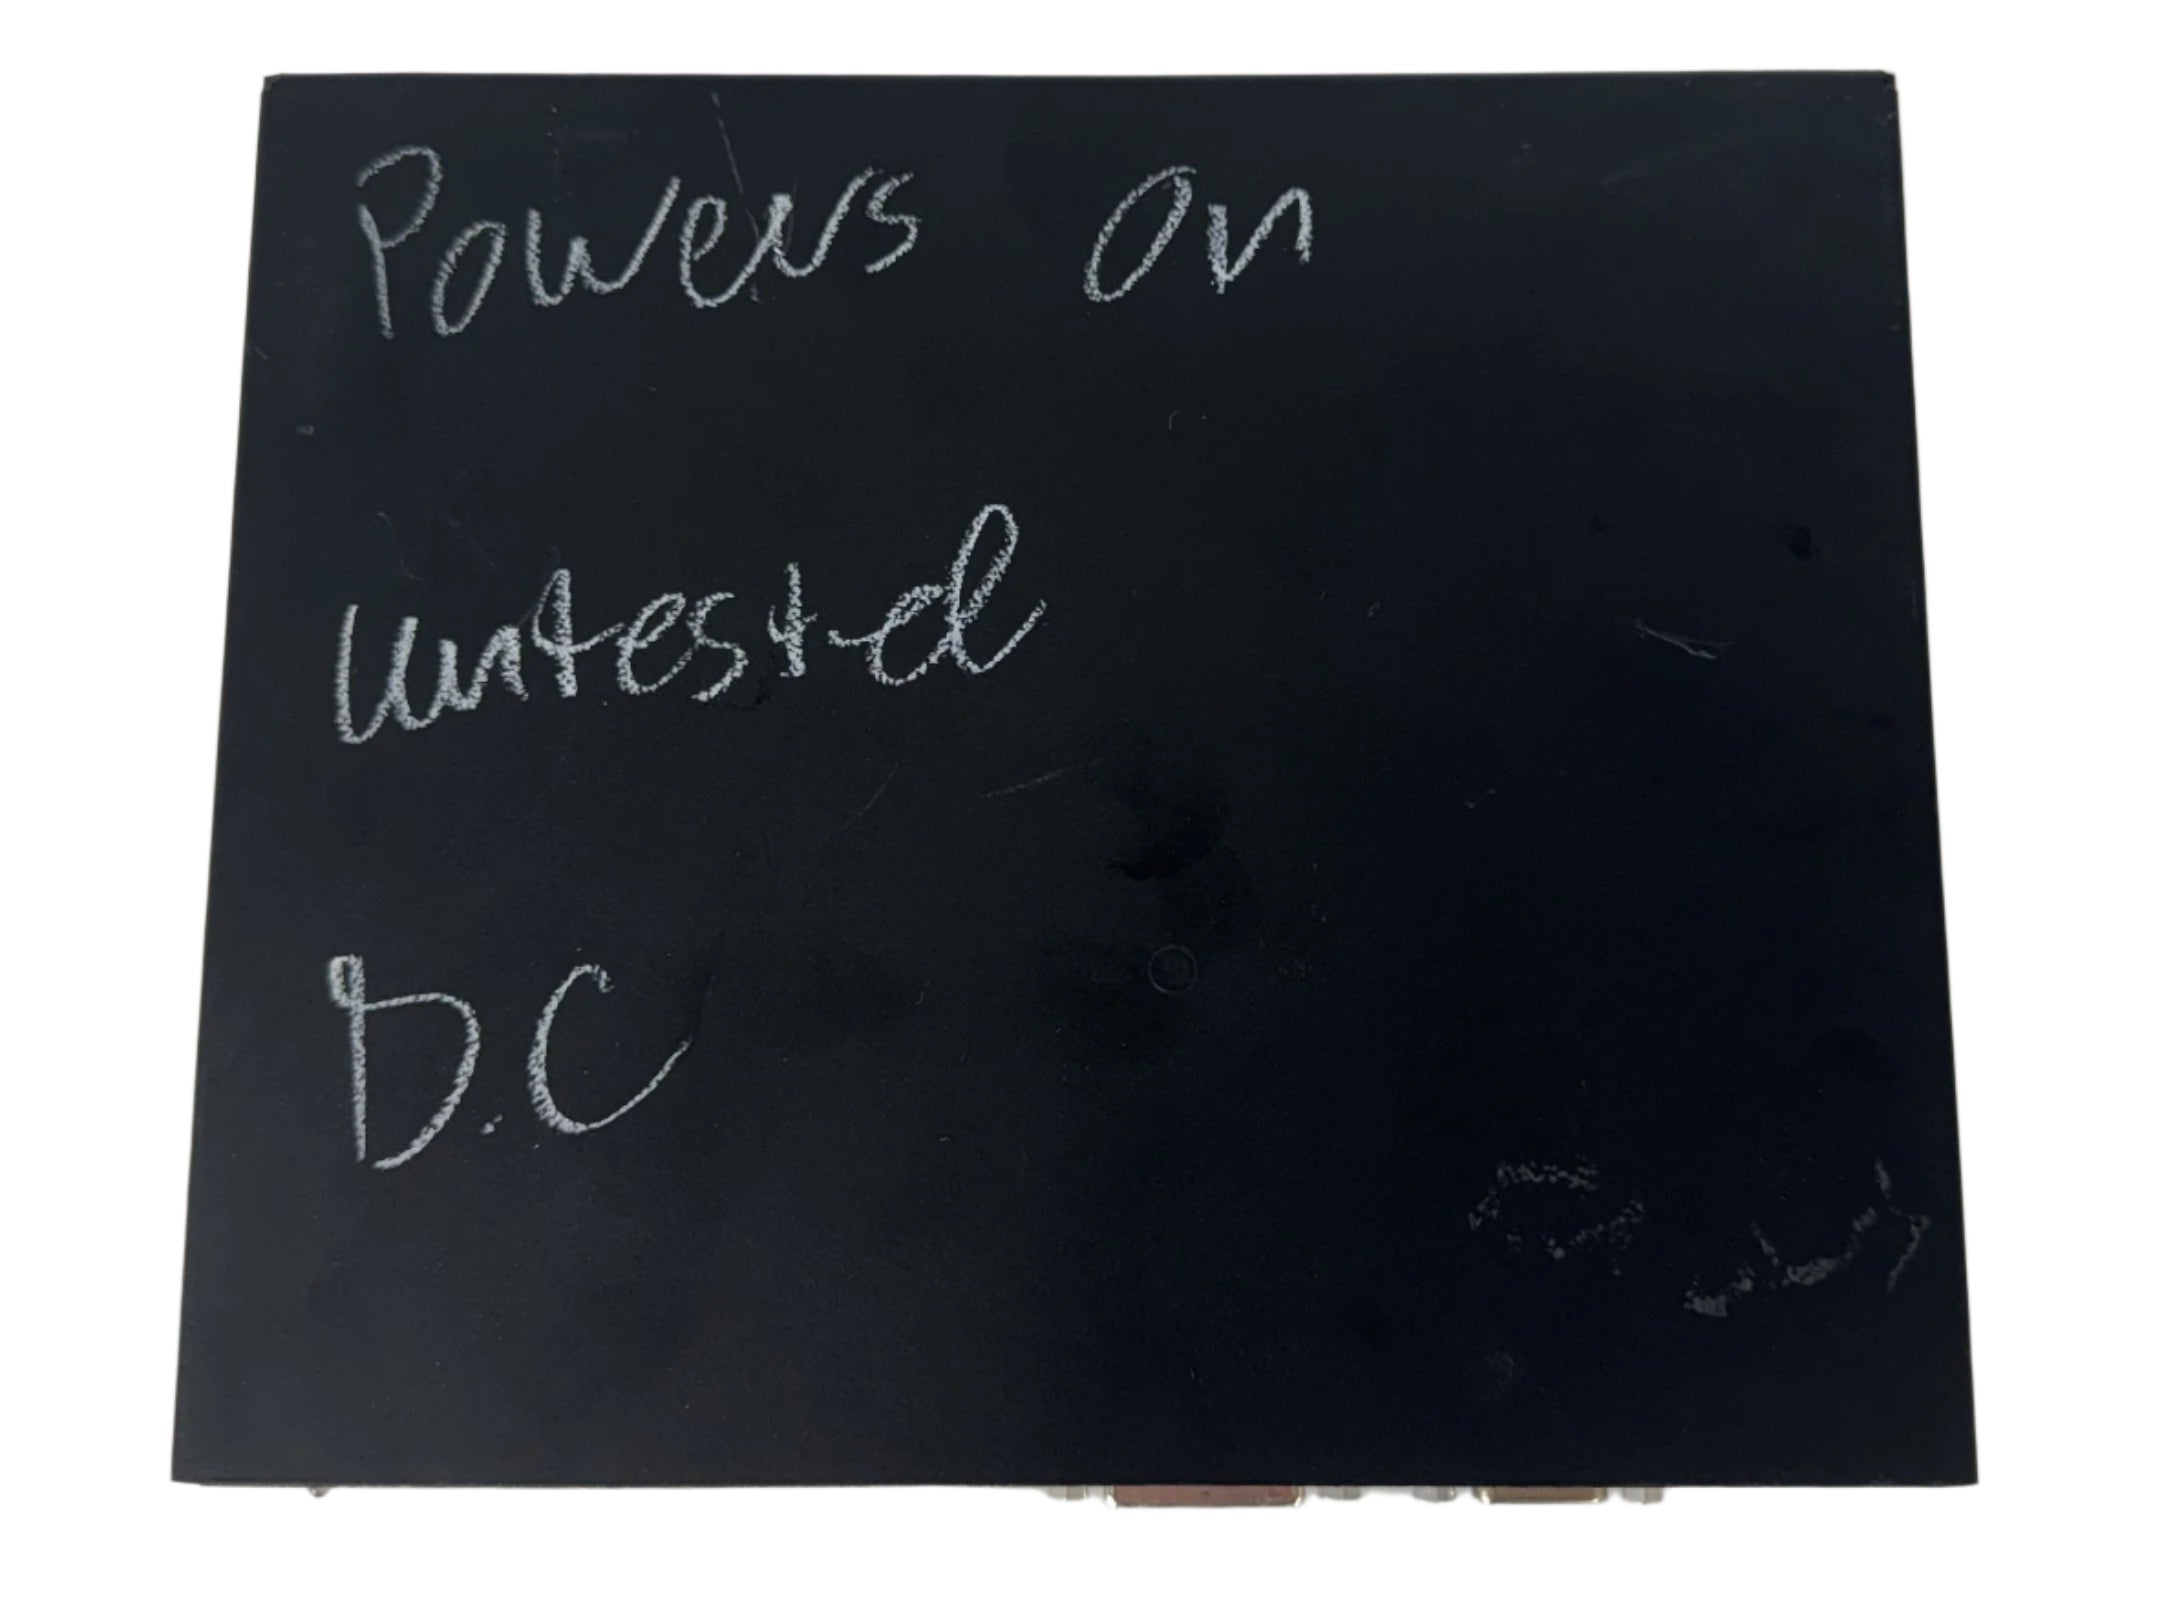 Powers On
untested
D.C